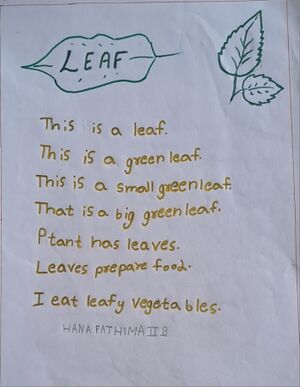 LEAF
This is a leaf.
This is a green leaf.
This is a small green leaf.
That is a big green leaf.
Plant has leaves.
Leaves prepare food.
I eat leafy vegetables.
HANA FATHIMA II B